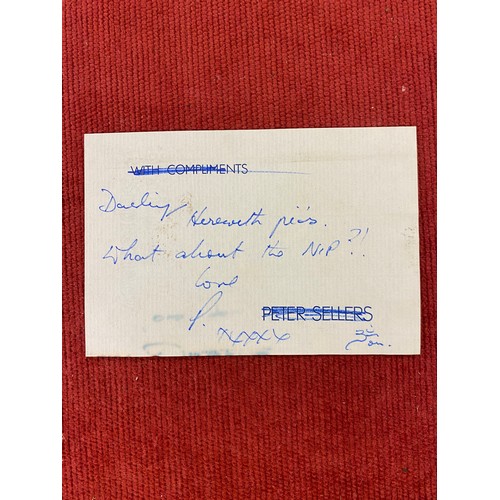 WITH COMPLIMENTS
Darling
Herewith pics.
What about the NIP?!
Love
P.
PETER SELLERS
xxxx
Jan.